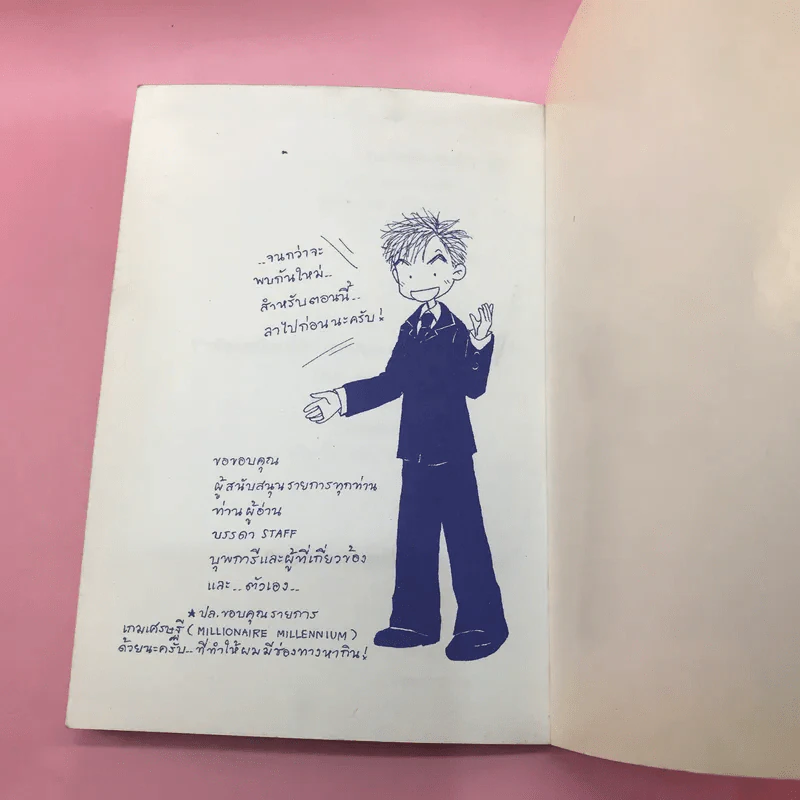 ..จนกว่าจะ
พบกันใหม่..
สำหรับตอนนี้..
ลาไปก่อนนะครับ!
ขอขอบคุณ
ผู้สนับสนุนรายการทุกท่าน
ท่านผู้อ่าน
บรรดา STAFF
บุพการีและผู้ที่เกี่ยวข้อง
และ..ตัวเอง..
★ ปล.ขอบคุณรายการ
เกมเศรษฐี (MILLIONAIRE MILLENNIUM)
ด้วยนะครับ..ที่ทำให้ผมมีช่องทางหากิน!